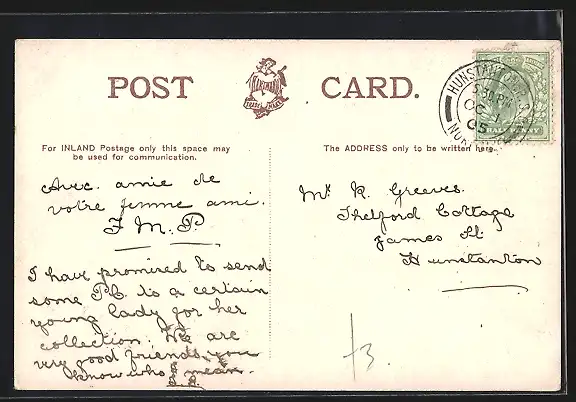 POST CARD.
HARTMANN
TRADE MARK
HUNSTANTON
5 30 PM
OC 1
05
HALF PENNY
For INLAND Postage only this space may
be used for communication.
The ADDRESS only to be written here.
Avec. amie de
votre femme ami.
F M. P
I have promised to send
some PC. to a certain
young lady for her
collection. We are
very good friends, you
know who I mean.
Mr R. Greeves.
Thetford Cottage
James St
Hunstanton